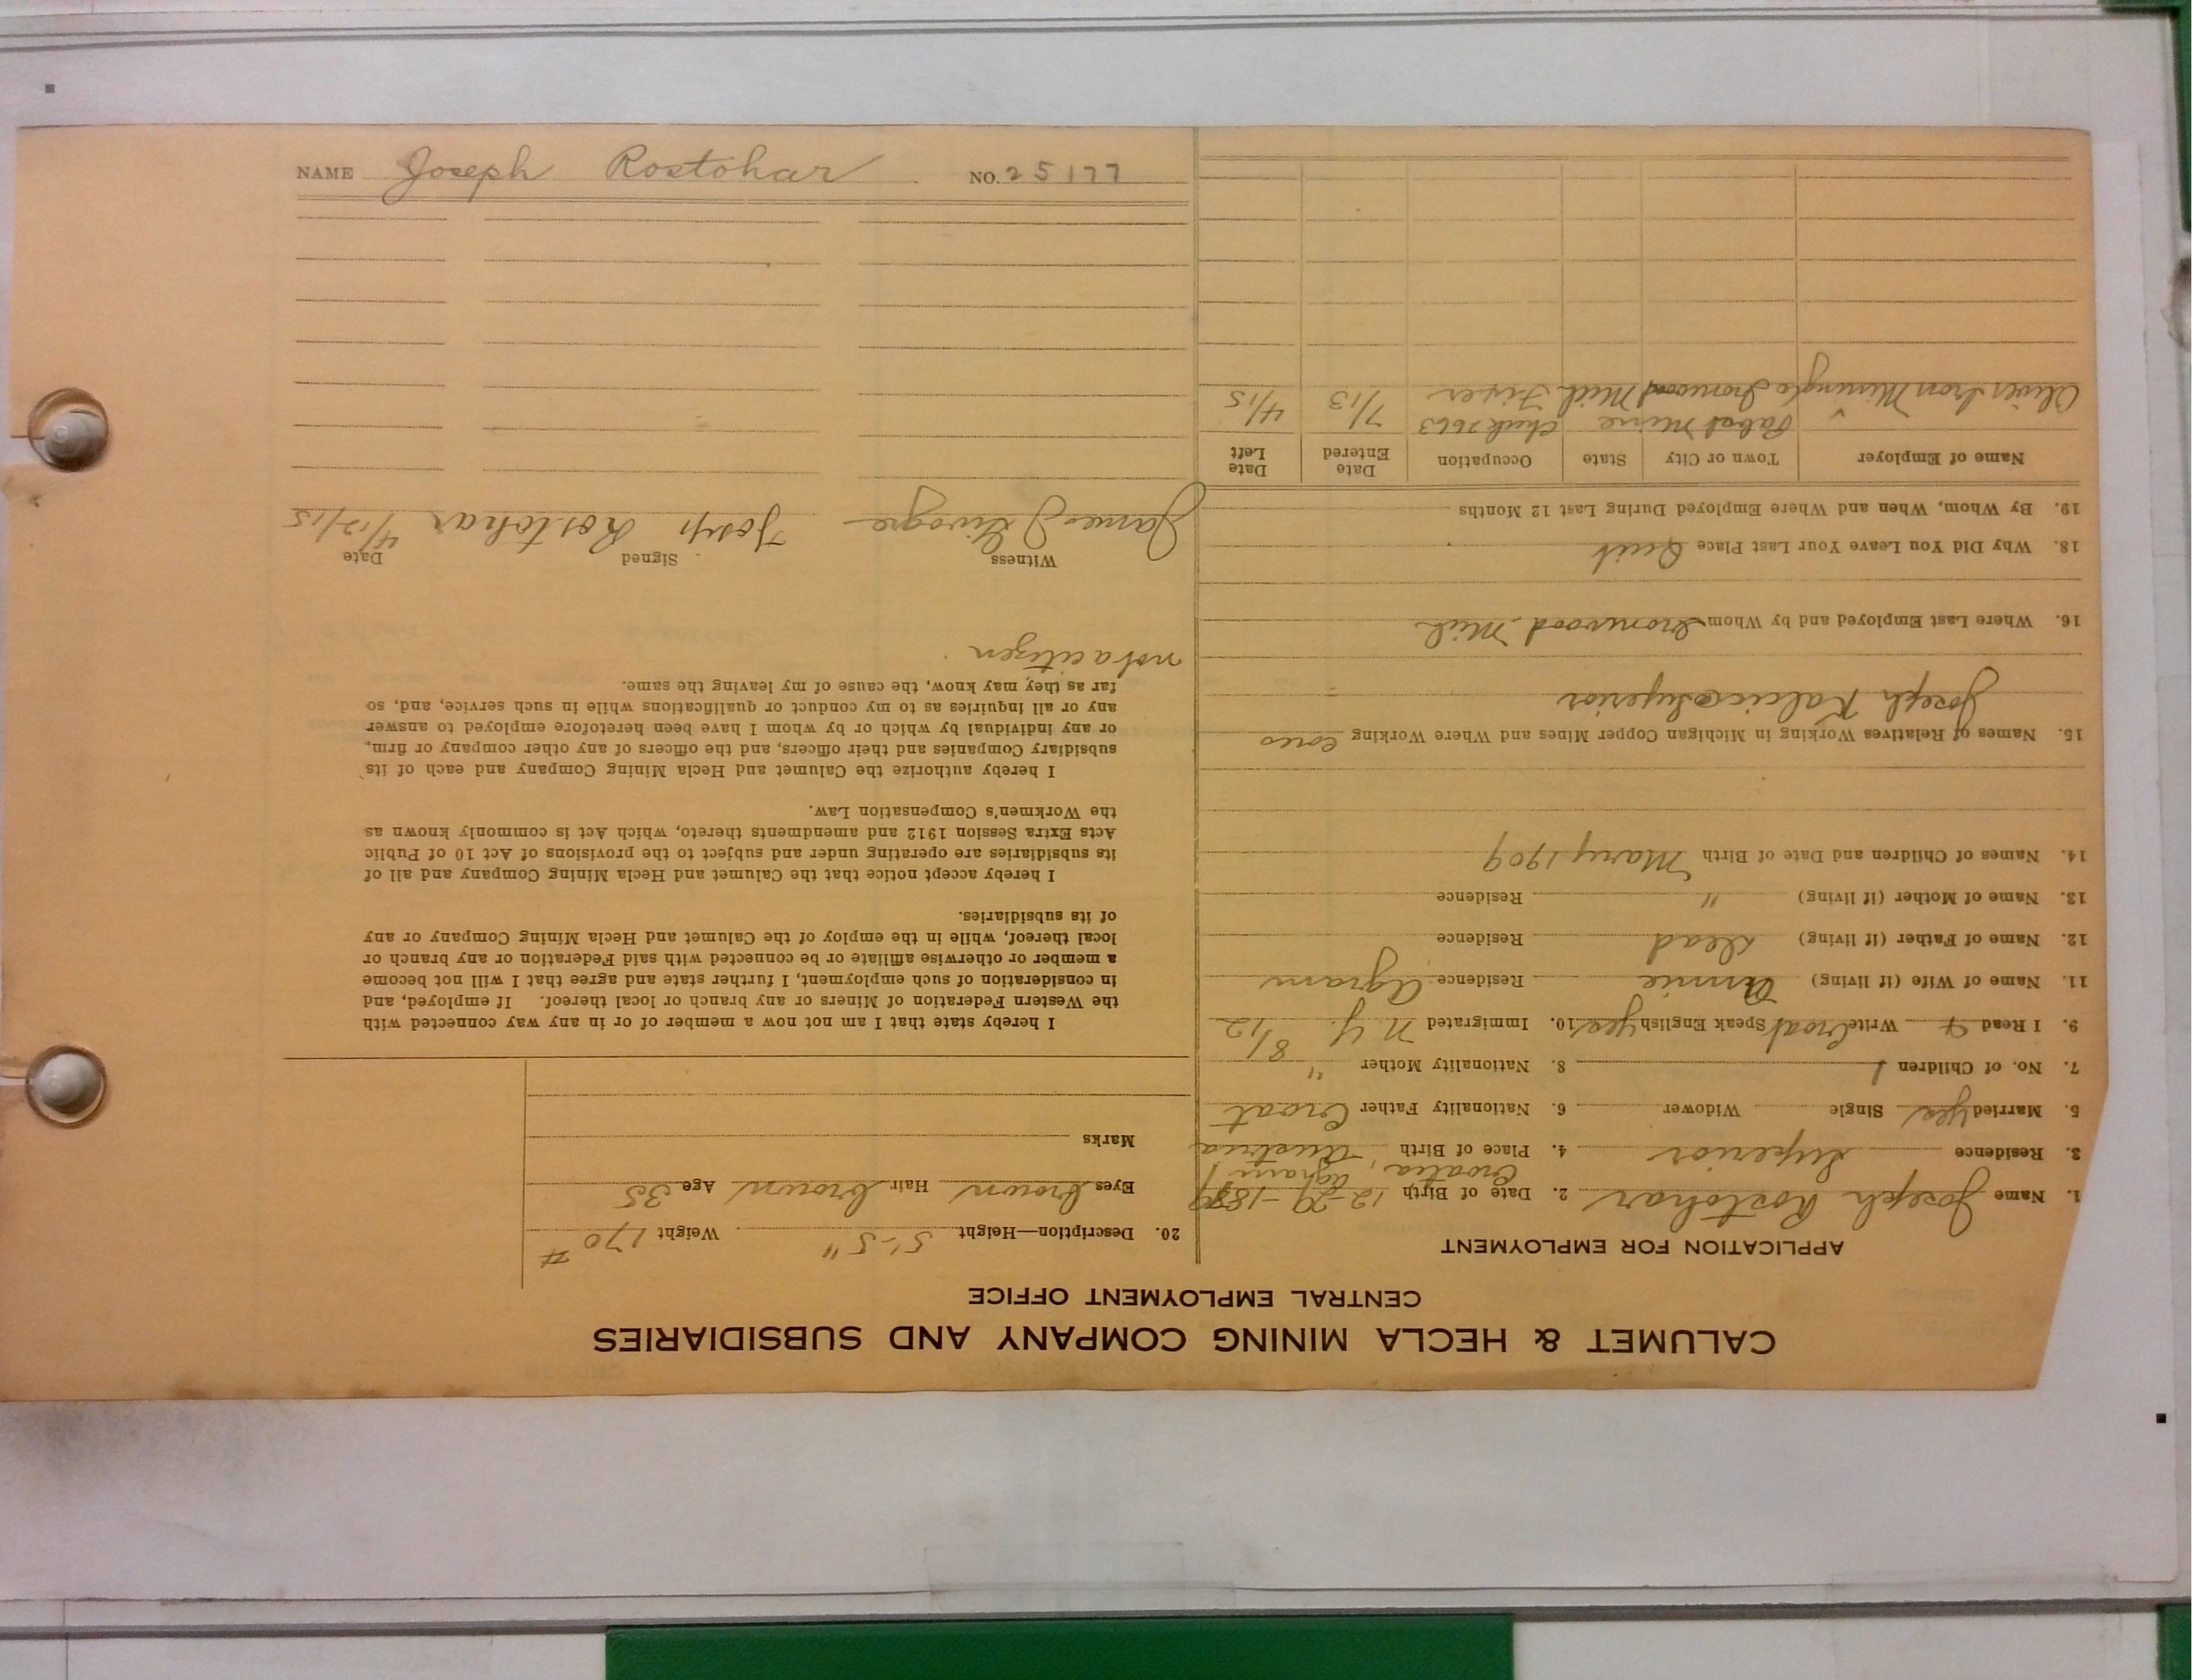 NAME Joseph Rostohar NO. 25177
CALUMET & HECLA MINING COMPANY AND SUBSIDIARIES
CENTRAL EMPLOYMENT OFFICE
APPLICATION FOR EMPLOYMENT
1. Name Joseph Rostohar 2. Date of Birth 12-29-
Croatia, Agram
3. Residence Superior 4. Place of Birth Austria
5. Married yes Single Widower 6. Nationality Father Croat
7. No. of Children 1 8. Nationality Mother "
9. I Read & Write Croat Speak English yes 10. Immigrated N.Y. 8/12
11. Name of Wife (if living) Annie Residence Agram
12. Name of Father (if living) dead Residence
13. Name of Mother (if living) " Residence
14. Names of Children and Date of Birth Mary 1909
15. Names of Relatives Working in Michigan Copper Mines and Where Working
Joseph Superior
16. Where Last Employed and by Whom Ironwood Mich
18. Why Did You Leave Your Last Place Quit
19. By Whom, When and Where Employed During Last 12 Months
Name of Employer Town or City State Occupation Date Entered Date Left
Pabst Mine check 7663
Oliver Iron Mining Co Ironwood Mich 7/13 4/15
20. Description—Height 5'-5" Weight 170 #
Eyes brown Hair brown Age 35
Marks
I hereby state that I am not now a member of or in any way connected with
the Western Federation of Miners or any branch or local thereof. If employed, and
in consideration of such employment, I further state and agree that I will not become
a member or otherwise affiliate or be connected with said Federation or any branch or
local thereof, while in the employ of the Calumet and Hecla Mining Company or any
of its subsidiaries.
I hereby accept notice that the Calumet and Hecla Mining Company and all of
its subsidiaries are operating under and subject to the provisions of Act 10 of Public
Acts Extra Session 1912 and amendments thereto, which Act is commonly known as
the Workmen's Compensation Law.
I hereby authorize the Calumet and Hecla Mining Company and each of its
subsidiary Companies and their officers, and the officers of any other company or firm,
or any individual by which or by whom I have been heretofore employed to answer
any or all inquiries as to my conduct or qualifications while in such service, and, so
far as they may know, the cause of my leaving the same.
not a citizen
Witness Signed Date
James J Josep Rostohar 4/12/15